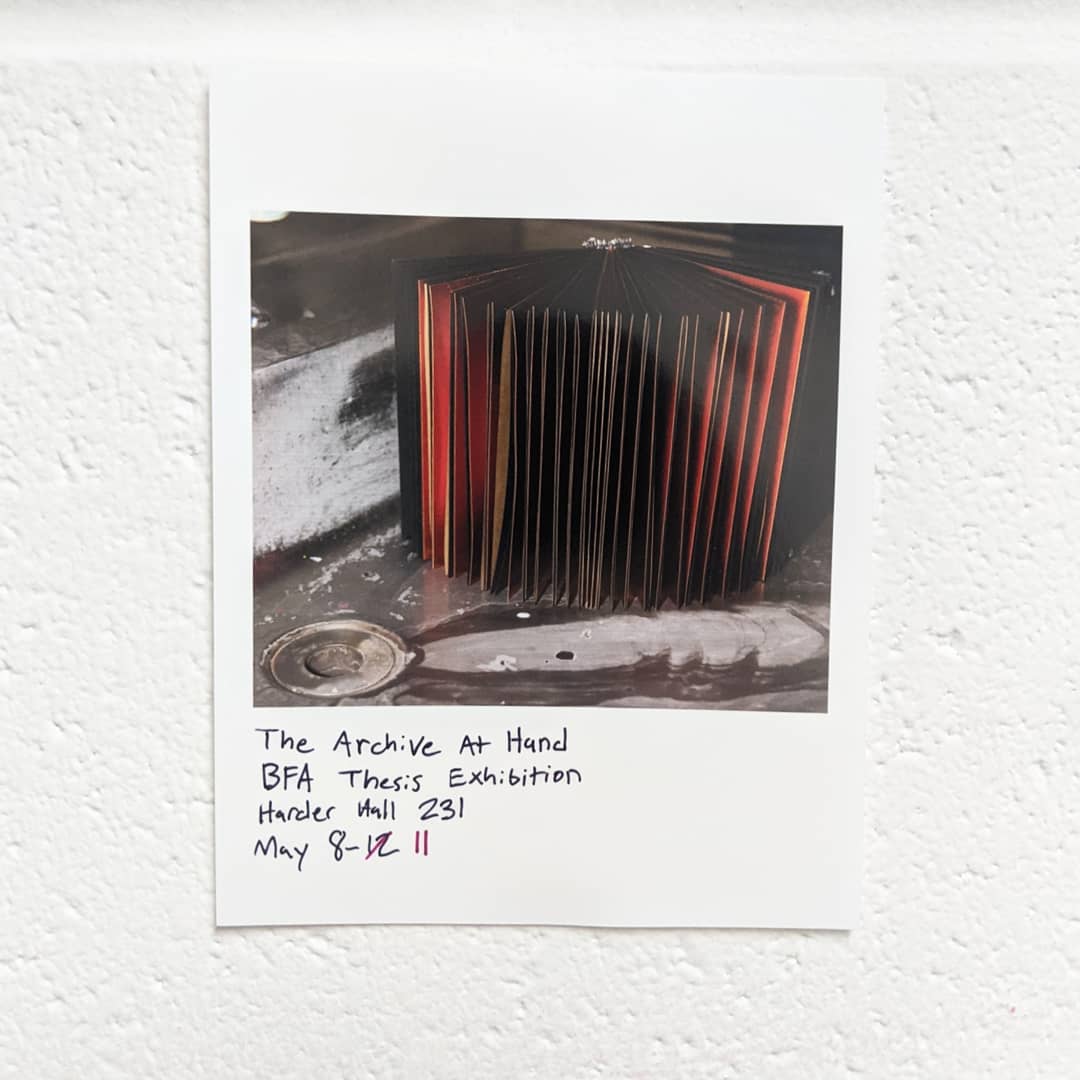 The Archive At Hand
BFA Thesis Exhibition
Harder Hall 231
May 8-12 11